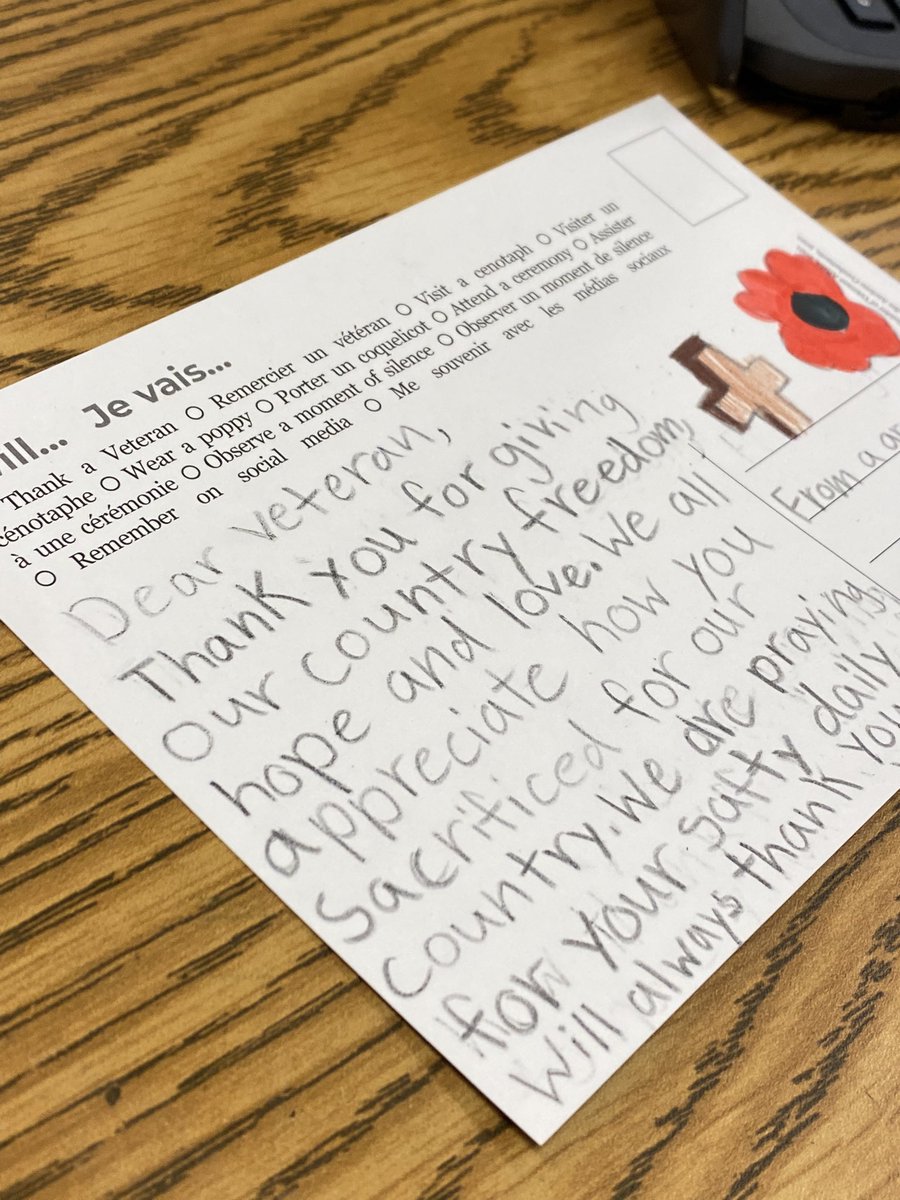 ill... Je vais...
Thank a Veteran O Remercier un vétéran O Visit a cenotaph O Visiter un
cénotaphe O Wear a poppy O Porter un coquelicot O Attend a ceremony O Assister
à une cérémonie O Observe a moment of silence O Observer un moment de silence
O Remember on social media O Me souvenir avec les médias sociaux
Dear veteran,
Thank you for giving
our country freedom,
hope and love. We all
appreciate how you
Sacrificed for our
country. We are praying
for your safty daily
Will always thank you
From a